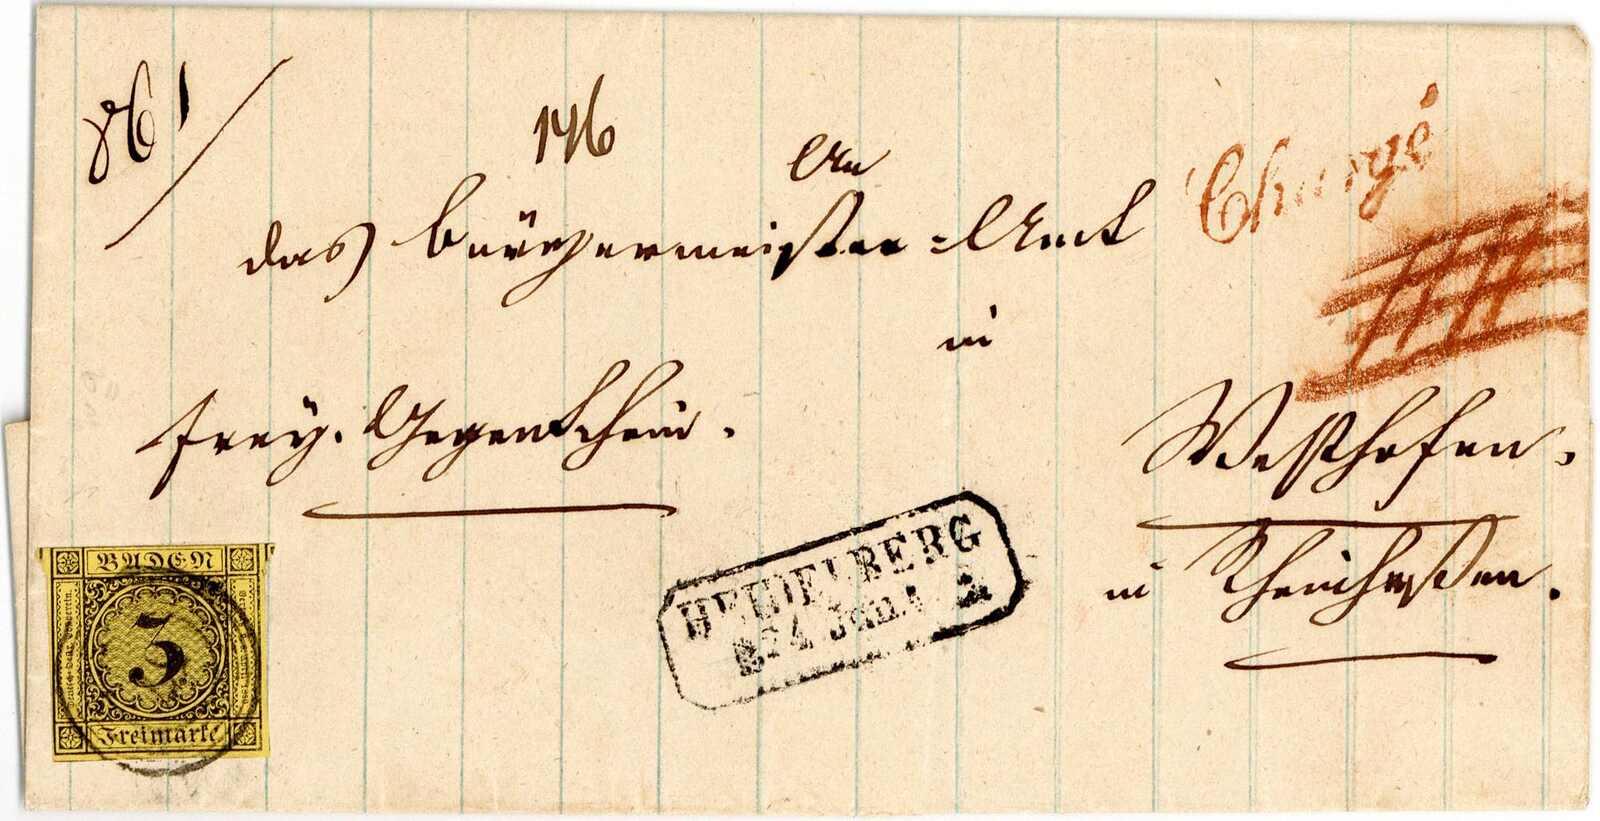 146
An
das Bürgermeister-Amt
Chargé
in
frey. Gegen Schein.
Westhofen.
in Rheinhessen.
HEIDELBERG
24 Jan.
BADEN
3
Freimarke